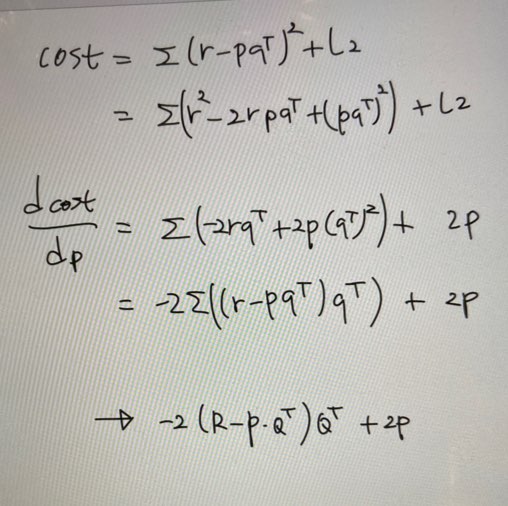 cost = Σ(r-pqᵀ)² + L2
= Σ(r² - 2rpqᵀ + (pqᵀ)²) + L2
dcost/dp = Σ(-2rqᵀ + 2p(qᵀ)²) + 2p
= -2Σ((r-pqᵀ)qᵀ) + 2p
→ -2(R-p·Qᵀ)Qᵀ + 2p